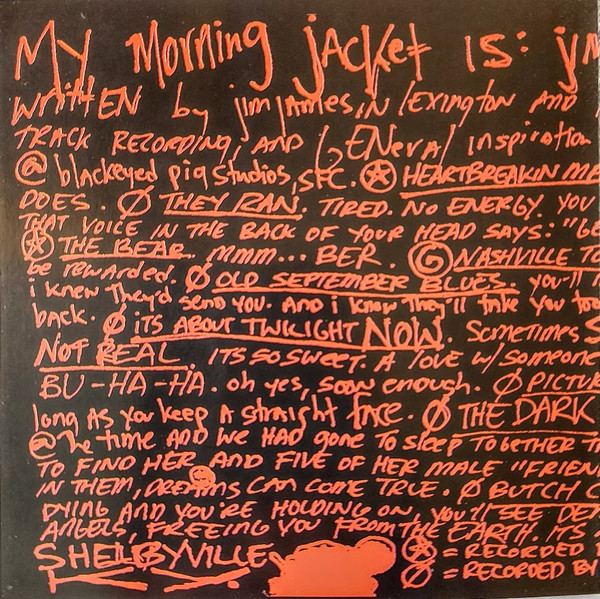 My Morning jacket is: jM
WRITTEN by jim james, IN lexington AND
TRACK RECORDING, AND GENeral inspiration
@ blackeyed pig studios, SFC. HEARTBREAKIN MA
DOES. Ø THEY RAN. TIRED. NO ENERGY. YOU
THAT VOICE IN THE BACK OF YOUR HEAD SAYS: "GE
THE BEAR. MMM... BER. NASHVILLE TO
be rewarded. Ø OLD SEPTEMBER BLUES. you'll
i knew they'd send you. And i know they'll take you too
back. Ø iTS ABOUT TWILIGHT NOW. Sometimes S
NOT REAL. ITS SO SWEET. A lOVE W/ SOMEONE
BU-HA-HA. oh yes, soon enough. Ø PICTU
long AS you keep A straight face. Ø THE DARK
@ the time AND WE HAD gone To sleep TOGETHER T
TO FIND HER AND FIVE OF HER MALE "FRIEN
IN THEM, DREAMS CAN COME TRUE. Ø BUTCH C
DYING AND YOU'RE HOLDING ON, YOU'll SEE DE
ANGELS, FREEING YOU FROM THE EARTH. ITS
SHELBYVILLE = RECORDED
Ø = RECORDED BY